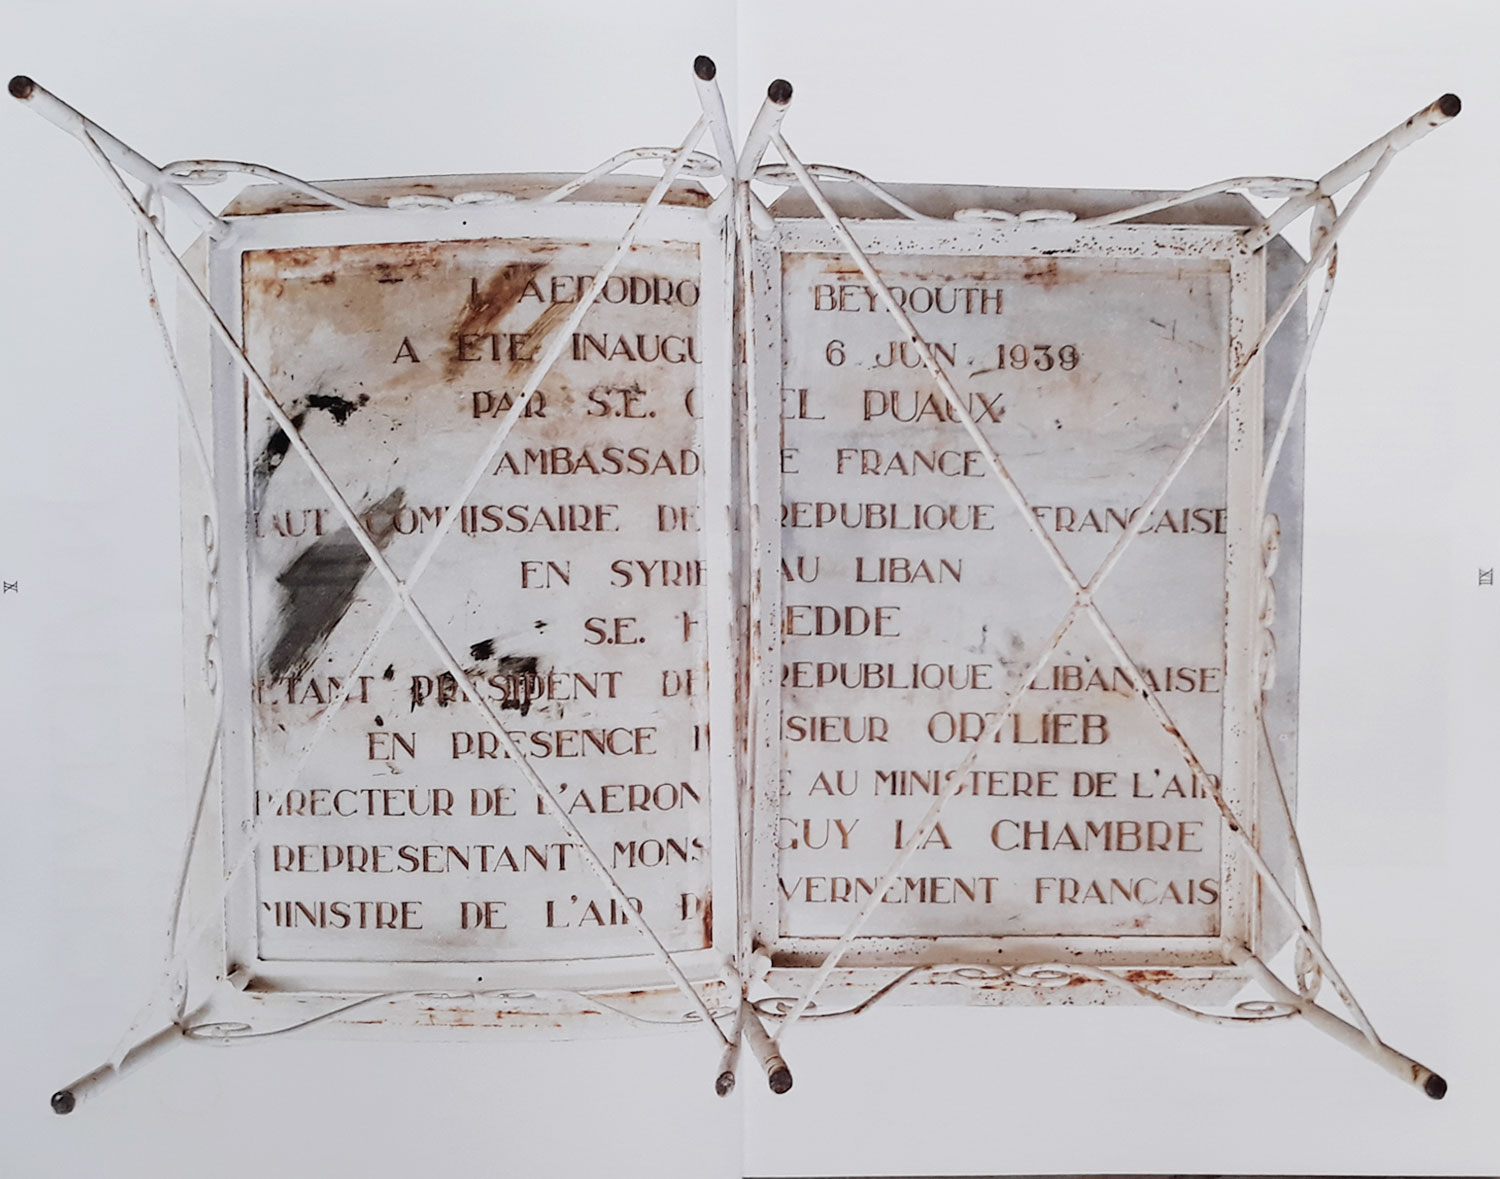 L'AERODRO BEYROUTH
A ETE INAUGU 6 JUIN 1939
PAR S.E. G EL PUAUX
AMBASSAD E FRANCE
AUT COMMISSAIRE DE REPUBLIQUE FRANÇAISE
EN SYRIE AU LIBAN
S.E. H EDDE
TANT PRESIDENT DE REPUBLIQUE LIBANAISE
EN PRESENCE SIEUR ORTLIEB
DIRECTEUR DE L'AERON E AU MINISTERE DE L'AIR
REPRESENTANT MONS GUY LA CHAMBRE
MINISTRE DE L'AIR D VERNEMENT FRANÇAIS
X
XII